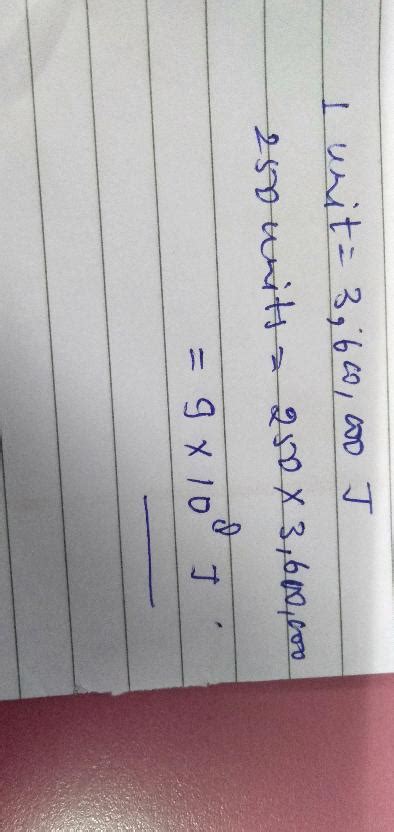 1 unit = 3,600,000 J
250 units = 250 × 3,600,000
= 9 × 10⁸ J.